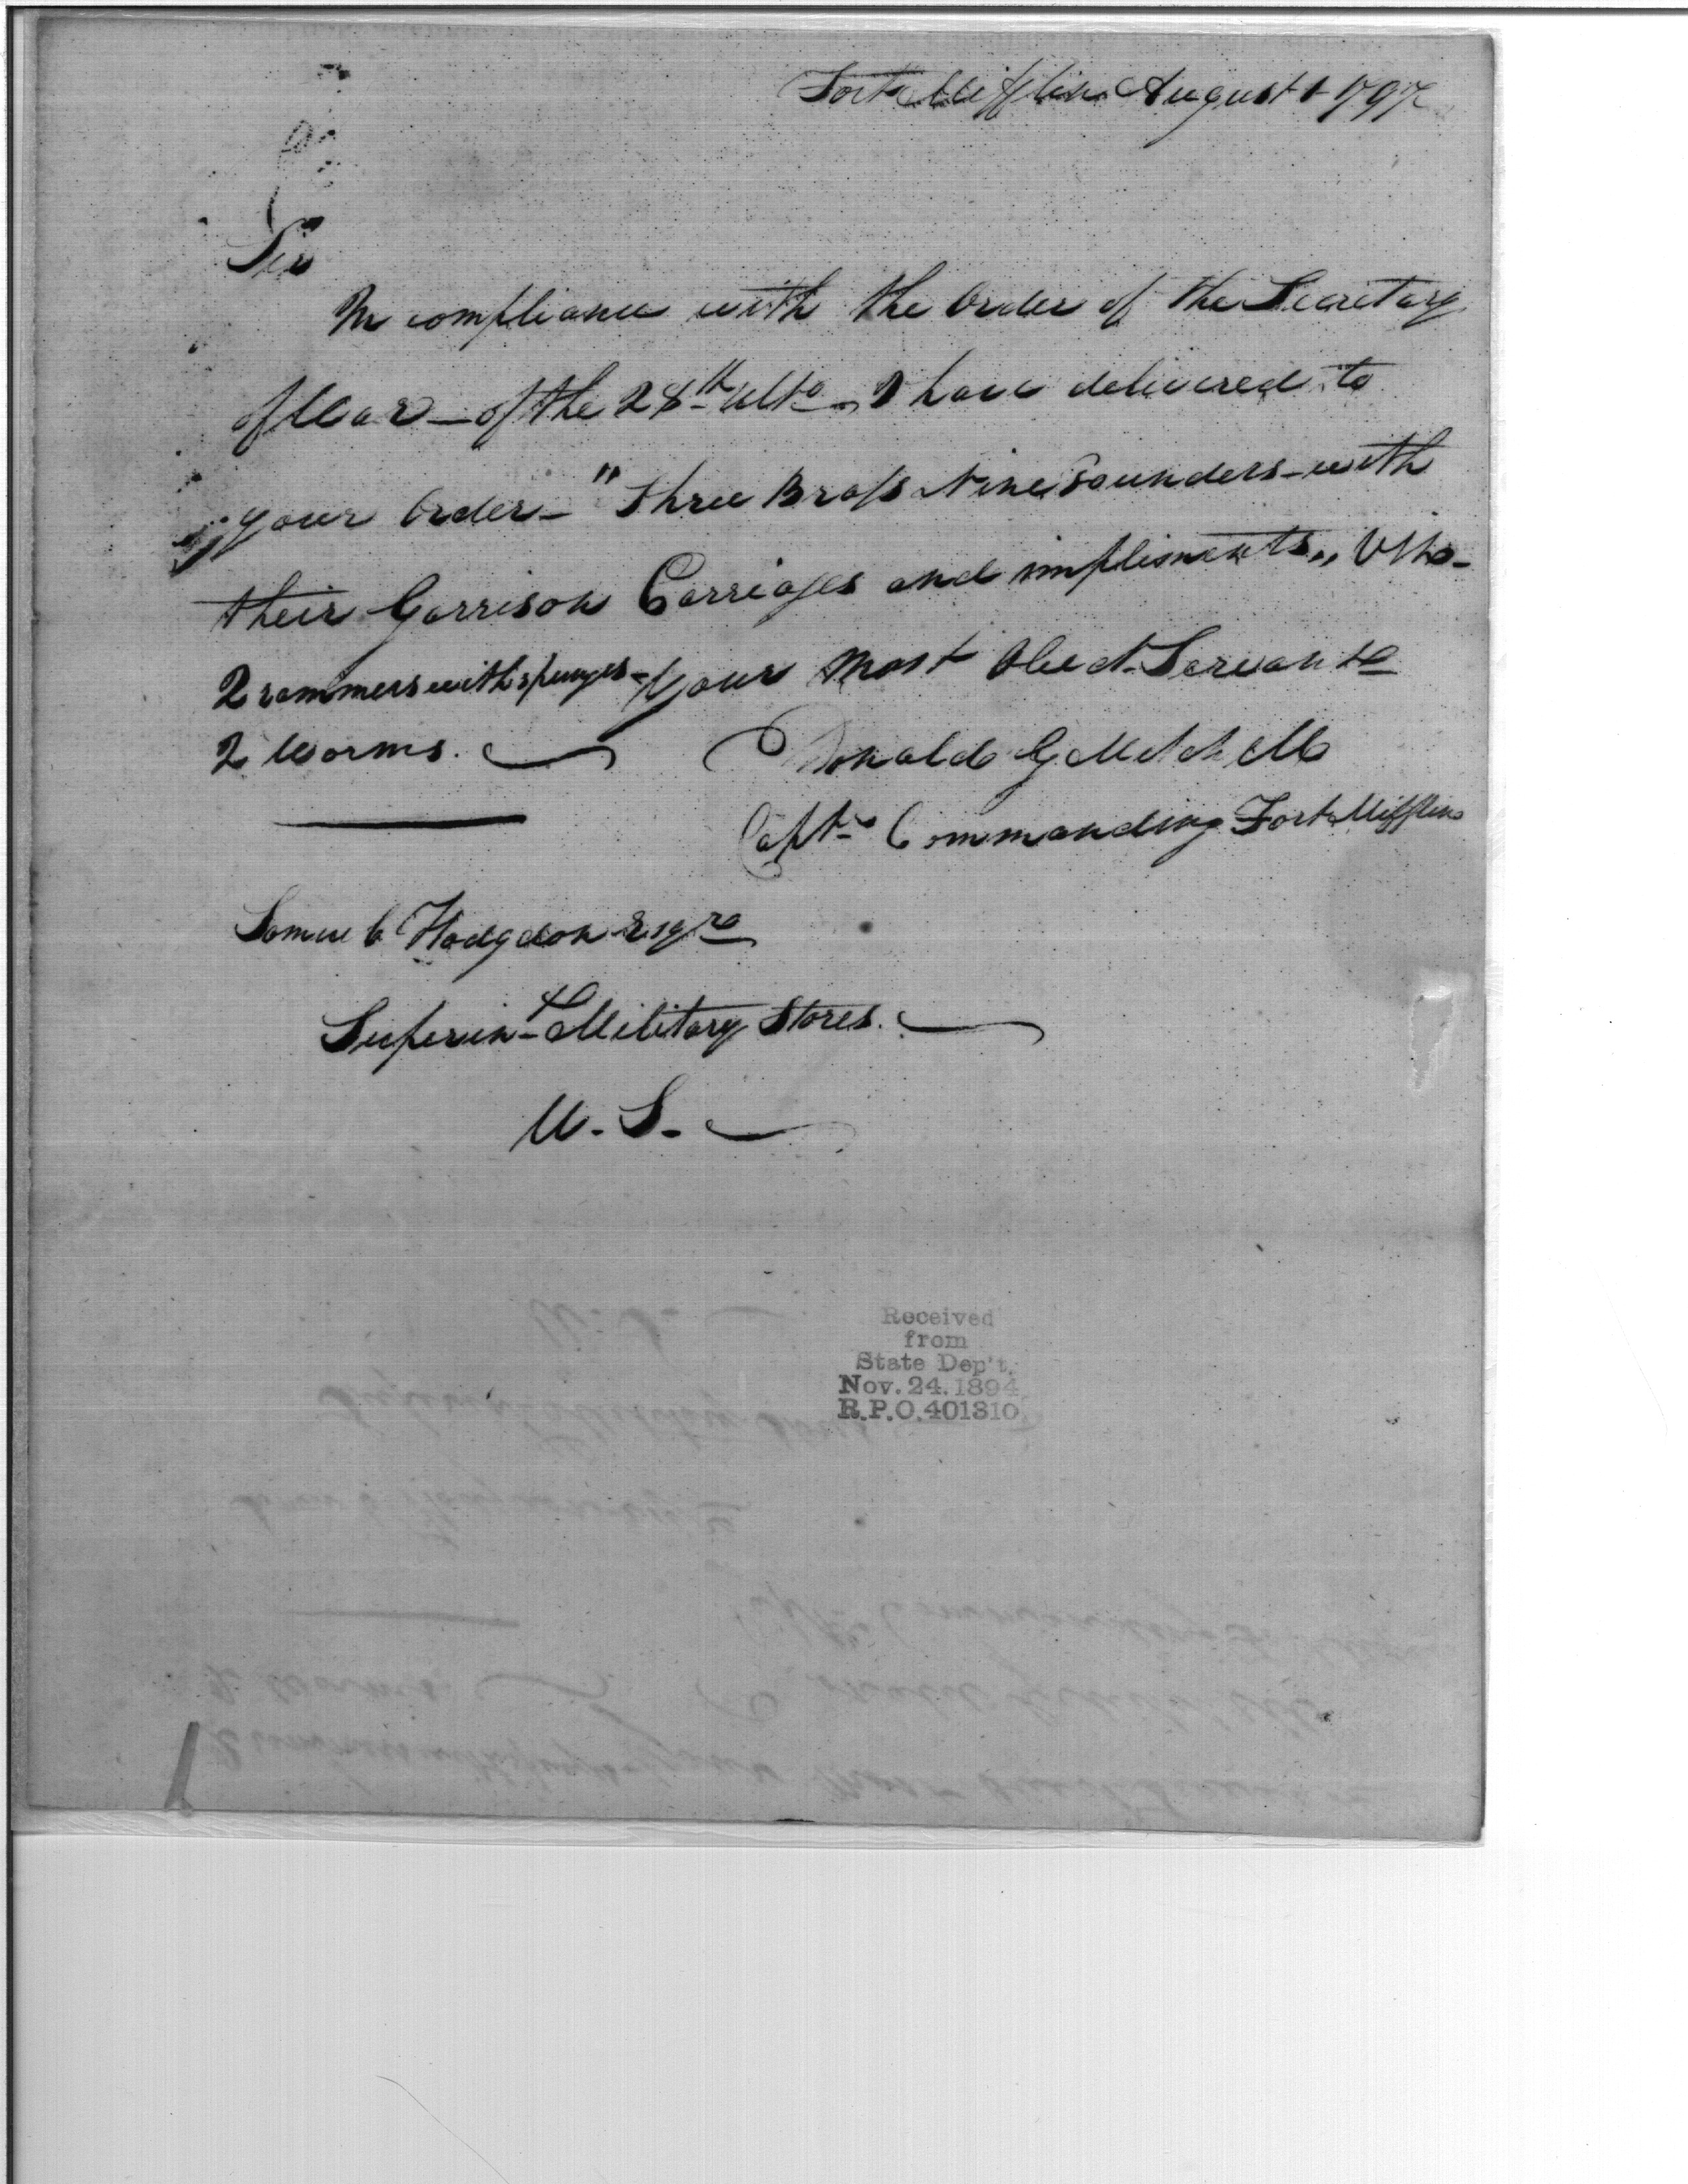 Fort Mifflin August 1 1797
Sir
In compliance with the Order of the Secretary
of War — of the 28th Ulto — I have delivered to
your Order — "Three Brass Nine Pounders — with
their Garrison Carriages and impliments,, Vizo —
2 rammers with spunges — Your Most Obedt Servant
2 Worms.
Donald G Mitchell
Captn Commanding Fort Mifflin
Samuel Hodgdon Esqre
Superint Military Stores.
U. S.
Received
from
State Dep't.
Nov. 24. 1894
R.P.O. 401310